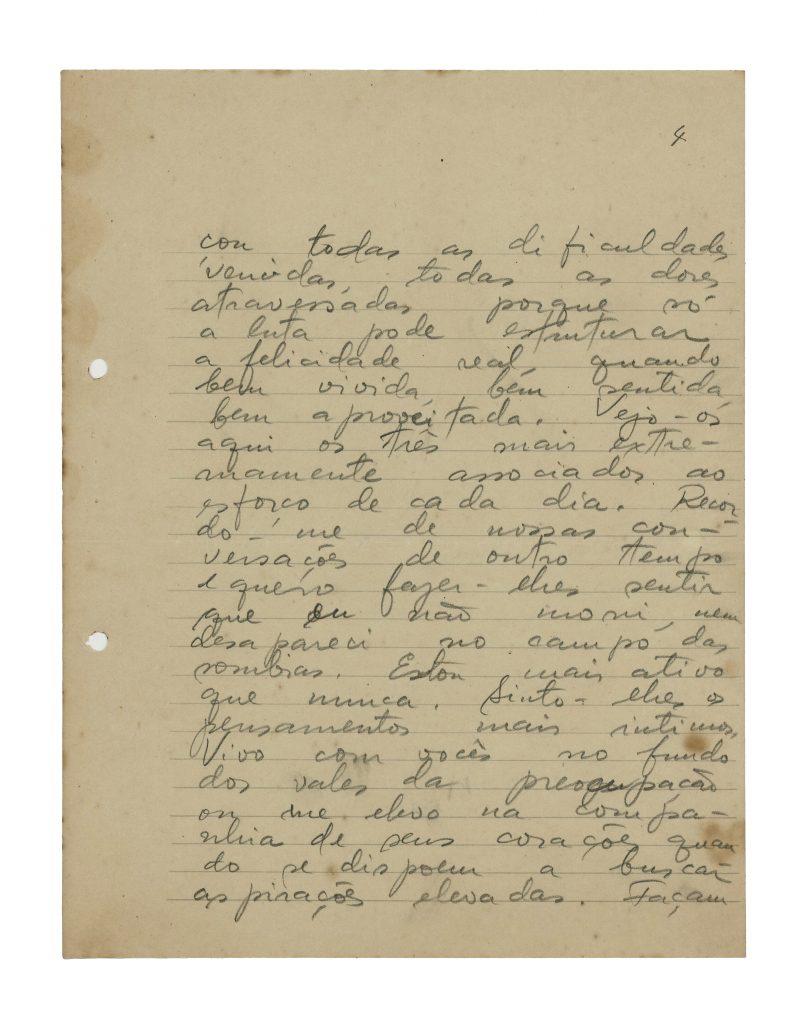 4
con todas as dificuldades
vencidas, todas as dores
atravessadas porque só
a luta pode estruturar
a felicidade real, quando
bem vivida, bem sentida,
bem aproveitada. Vejo-os
aqui os três mais extre-
mamente associados ao
esforço de cada dia. Recor-
do-me de nossas con-
versações de outro tempo
e quero fazer-lhes sentir
que eu não morri, nem
desapareci no campo das
sombras. Estou mais ativo
que nunca. Sinto-lhes os
pensamentos mais intimos.
Vivo com vocês no fundo
dos vales da preocupação
ou me elevo na compa-
nhia de seus corações quan
do se dispoem a buscar
aspirações elevadas. Façam